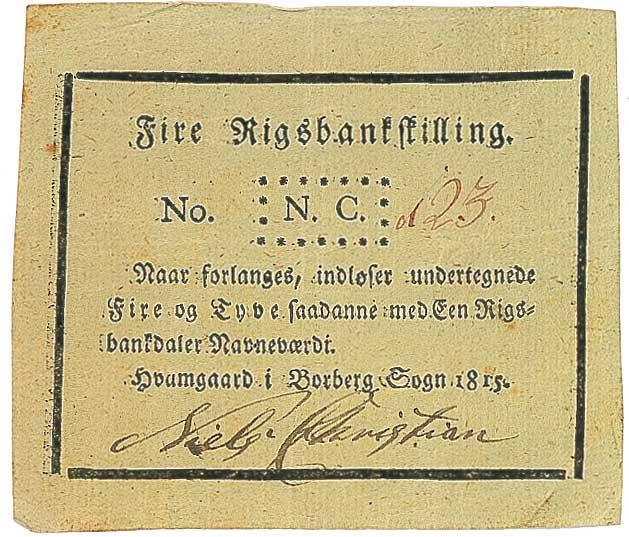 Fire Rigsbankskilling.
No. N. C. d 23.
Naar forlanges, indløser undertegnede
Fire og Tyve saadanne med Een Rigs-
bankdaler Navneværdi.
Hvamgaard i Borberg Sogn 1815.
Niels Christian